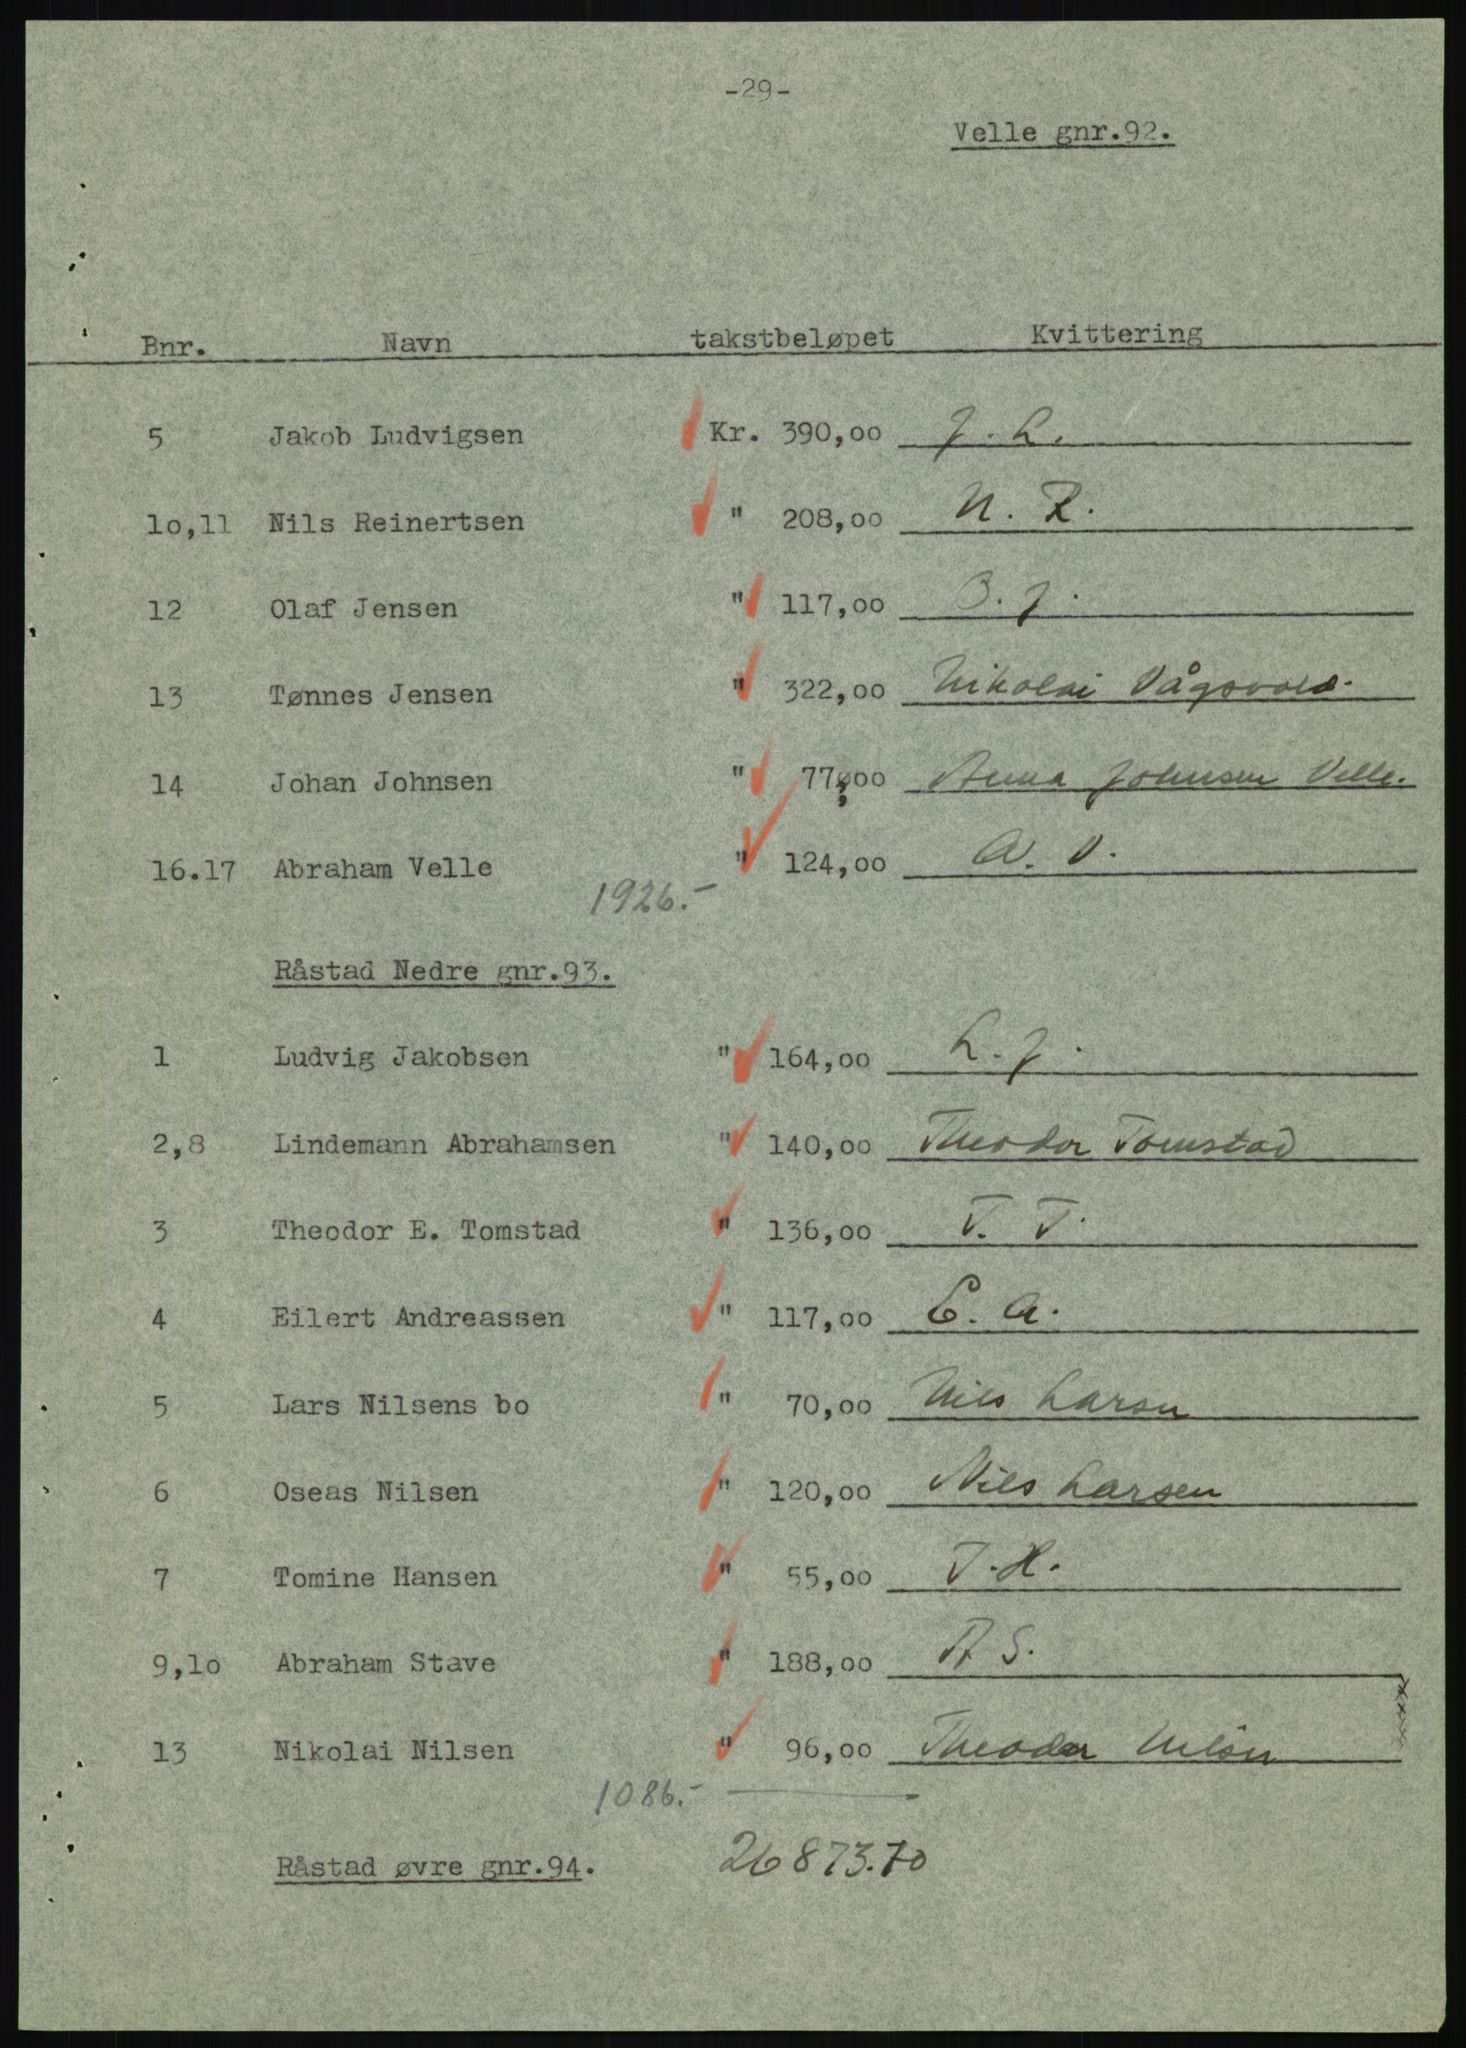 -29-
Velle gnr.92.
Bnr. Navn takstbeløpet Kvittering
5 Jakob Ludvigsen Kr. 390,oo J. L.
lo,ll Nils Reinertsen " 208,oo N. R.
12 Olaf Jensen " 117,oo O. J.
13 Tønnes Jensen " 322,oo Nikolai Vågsvold.
14 Johan Johnsen " 77,oo Anna Johnsen Velle.
16.17 Abraham Velle " 124,oo A. V.
1926.-
Råstad Nedre gnr.93.
1 Ludvig Jakobsen " 164,oo L. J.
2,8 Lindemann Abrahamsen " 140,oo Theodor Tomstad
3 Theodor E. Tomstad " 136,oo T. T.
4 Eilert Andreassen " 117,oo E. A.
5 Lars Nilsens bo " 70,oo Nils Larsen
6 Oseas Nilsen " 120,oo Nils Larsen
7 Tomine Hansen " 55,oo T. H.
9,lo Abraham Stave " 188,oo A S.
13 Nikolai Nilsen " 96,oo Theodor Nilsen
1086.-
Råstad øvre gnr.94. 26873.70